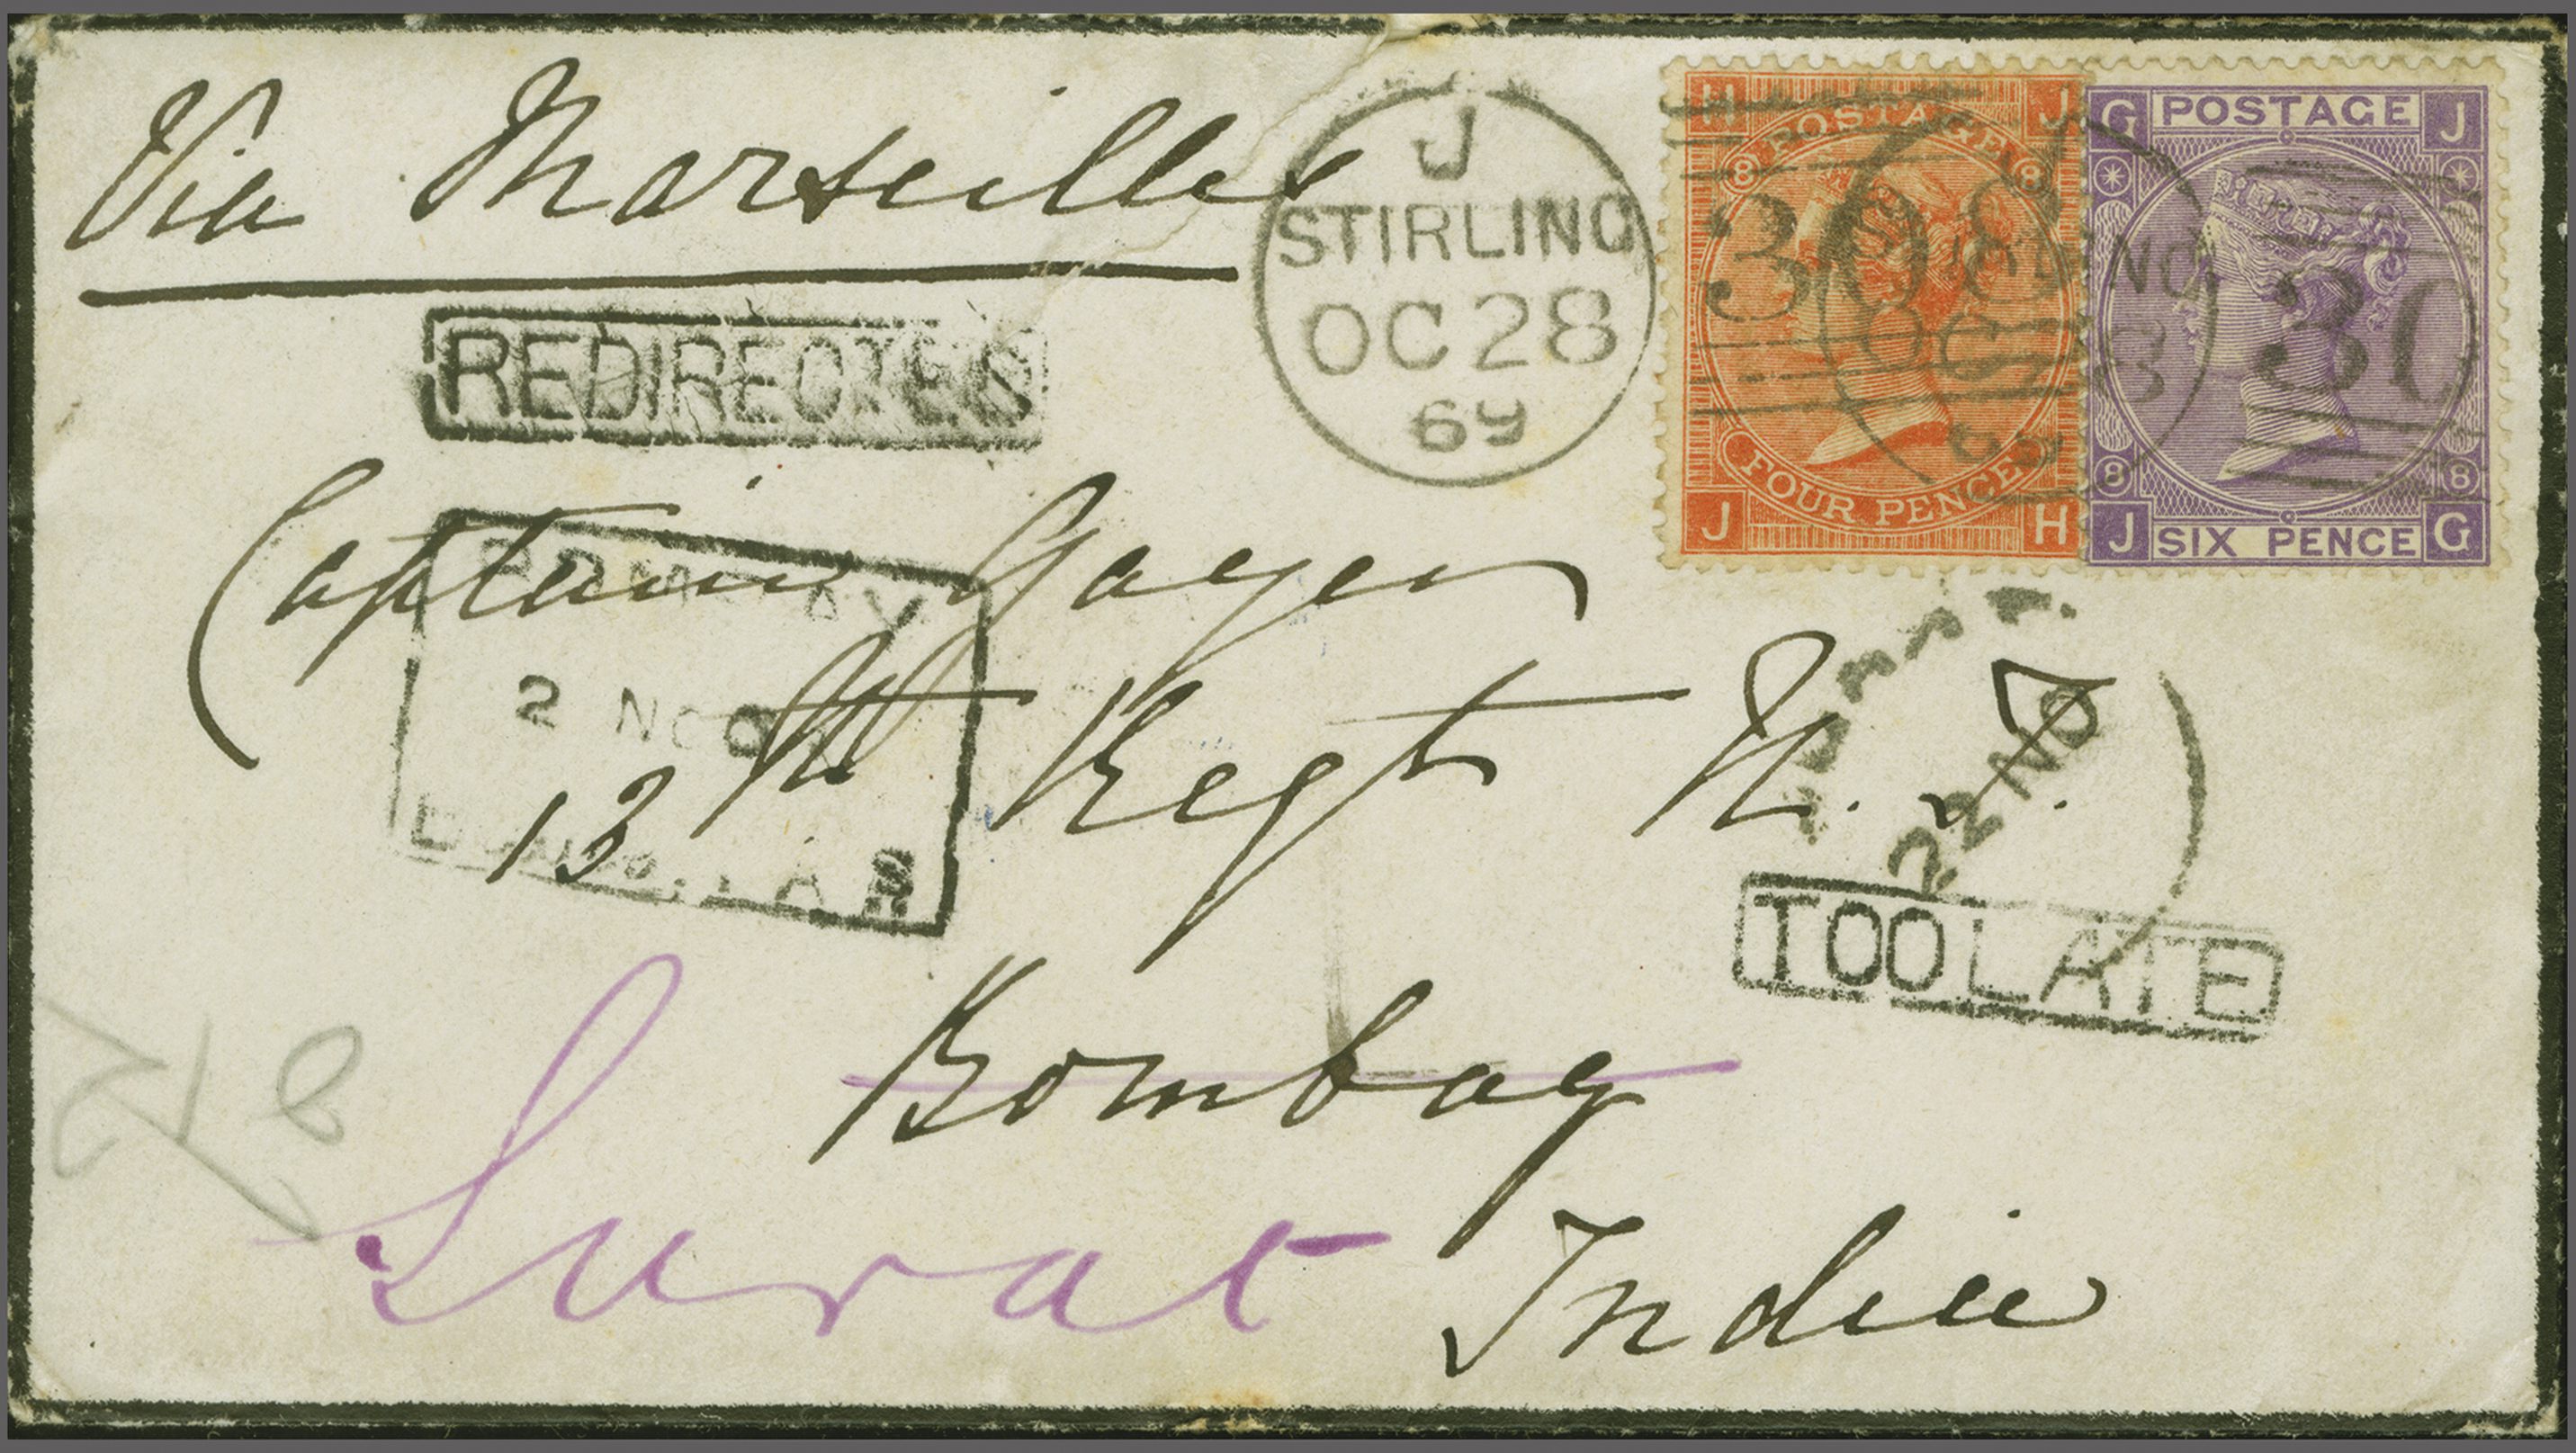 Via Marseilles
J
STIRLING
OC 28
69
H J
POSTAGE
8 8
308
FOUR PENCE
J H
G POSTAGE J
30
8 8
J SIX PENCE G
REDIRECTED
Captain
2 NO
13th Regt N. I.
22 NO
TOO LATE
Bombay
Surat
India